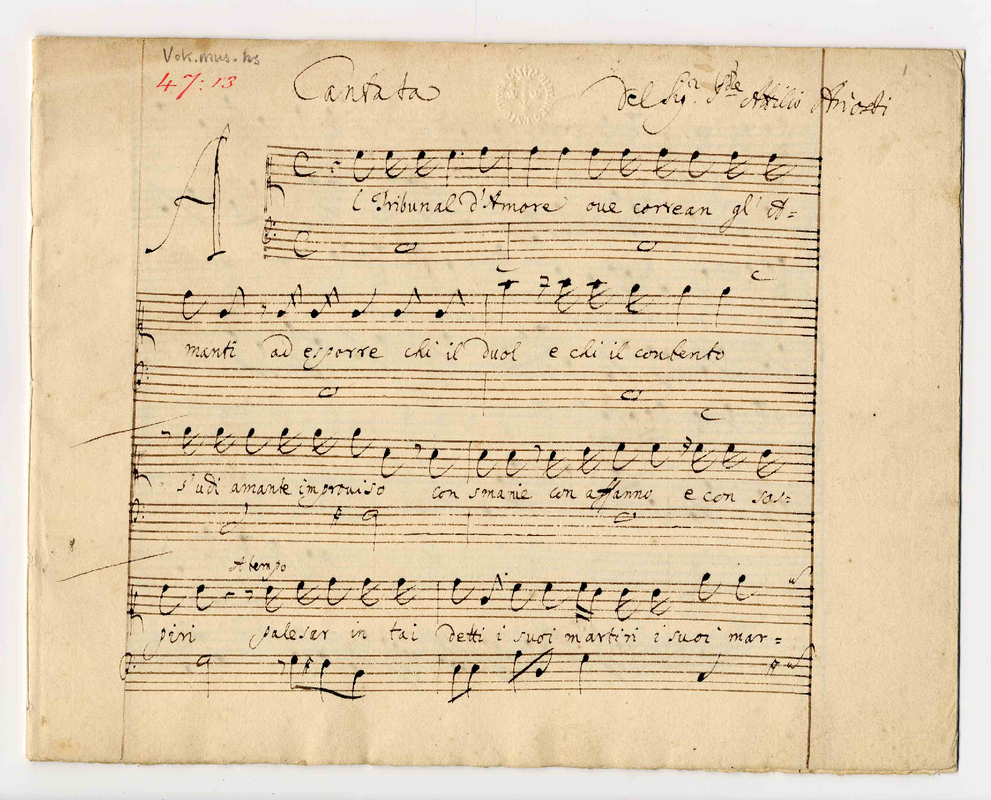 Vok. mus. hs
47:13
Cantata
Del Sig.r Attilio Ariosti
Al Tribunal d'Amore oue correan gl' A=
manti ad esporre chi il duol e chi il contento
s'udi amante improuiso con smanie con affanno e con sos=
A tempo
piri palesar in tai detti i suoi martiri i suoi mar=